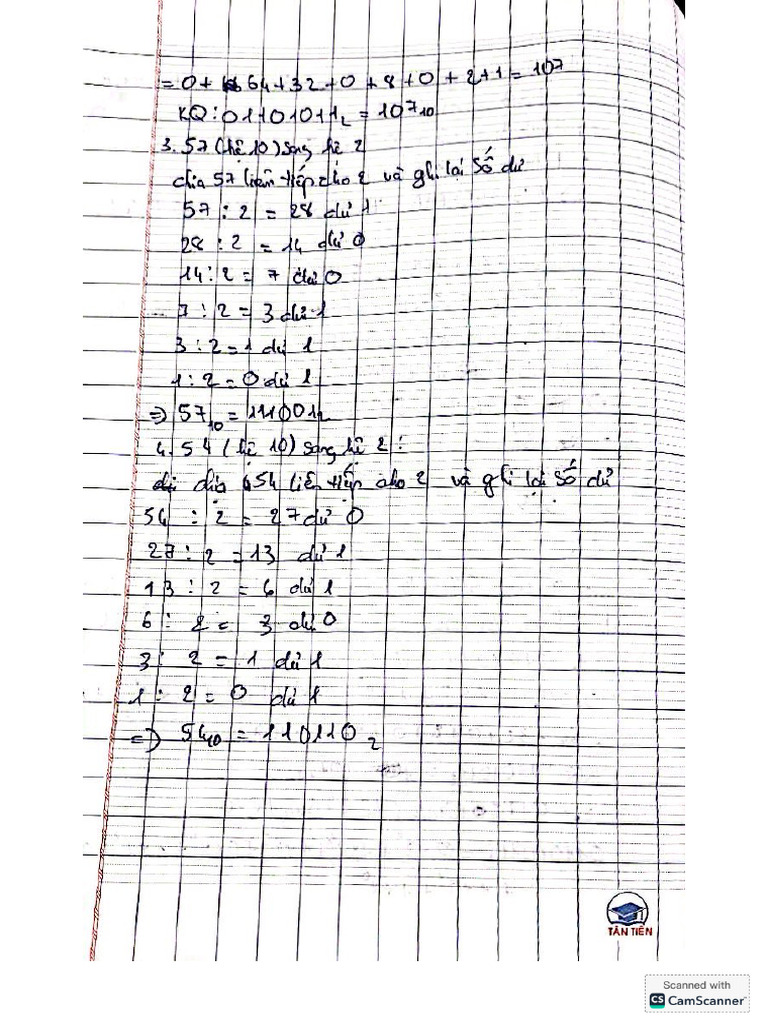 = 0 + 64 + 32 + 0 + 8 + 0 + 2 + 1 = 107
KQ : 01101011₂ = 107₁₀
3. 57 (hệ 10) sang hệ 2
chia 57 liên tiếp cho 2 và ghi lại số dư
57 : 2 = 28 dư 1
28 : 2 = 14 dư 0
14 : 2 = 7 dư 0
7 : 2 = 3 dư 1
3 : 2 = 1 dư 1
1 : 2 = 0 dư 1
=> 57₁₀ = 111001₂
4. 54 (hệ 10) sang hệ 2 :
chia 54 liên tiếp cho 2 và ghi lại số dư
54 : 2 = 27 dư 0
27 : 2 = 13 dư 1
13 : 2 = 6 dư 1
6 : 2 = 3 dư 0
3 : 2 = 1 dư 1
1 : 2 = 0 dư 1
=> 54₁₀ = 110110₂
TÂN TIẾN
Scanned with
CS CamScanner